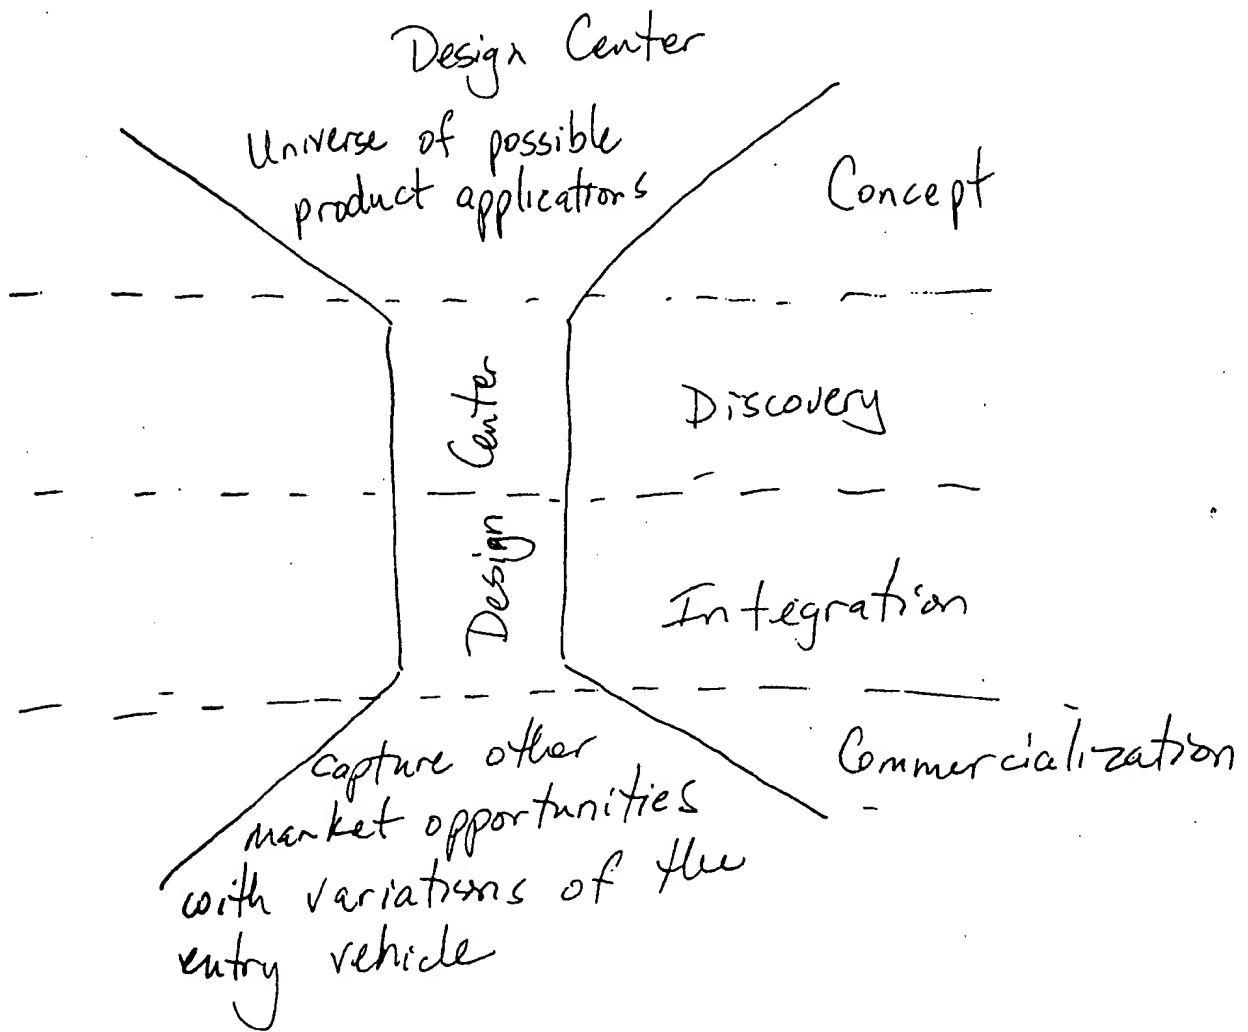 Design Center
Universe of possible
product applications
Concept
Design Center
Discovery
Integration
Commercialization
capture other
market opportunities
with variations of the
entry vehicle